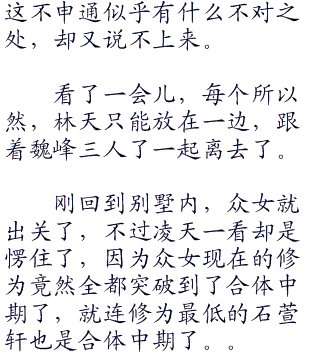 这不申通似乎有什么不对之
处，却又说不上来。
看了一会儿，每个所以
然，林天只能放在一边，跟
着魏峰三人了一起离去了。
刚回到别墅内，众女就
出关了，不过凌天一看却是
愣住了，因为众女现在的修
为竟然全都突破到了合体中
期了，就连修为最低的石萱
轩也是合体中期了。。